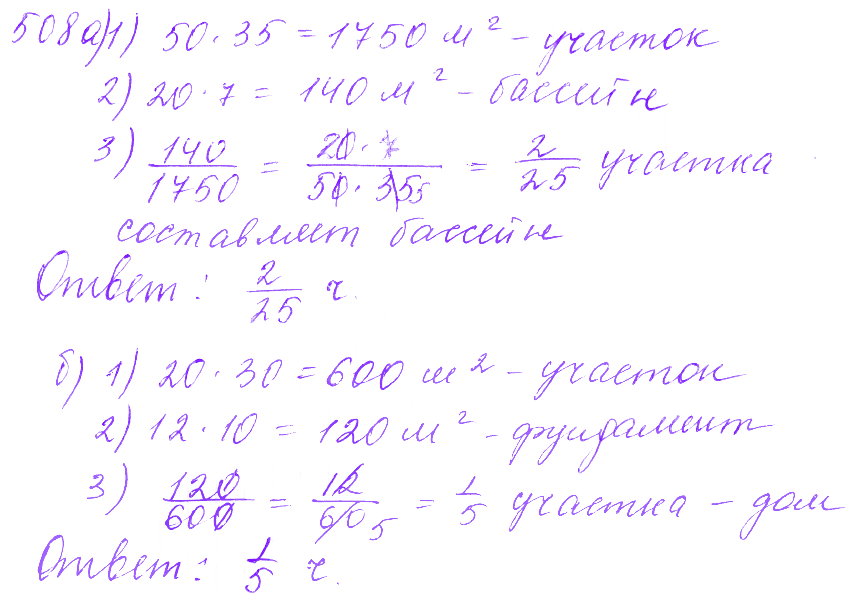 508 а) 1) 50 · 35 = 1750 м² - участок
2) 20 · 7 = 140 м² - бассейн
3) 140/1750 = 20 · 7/50 · 35 5 = 2/25 участка
составляет бассейн
Ответ: 2/25 ч.
б) 1) 20 · 30 = 600 м² - участок
2) 12 · 10 = 120 м² - фундамент
3) 120/600 = 12/60 5 = 1/5 участка - дом
Ответ: 1/5 ч.